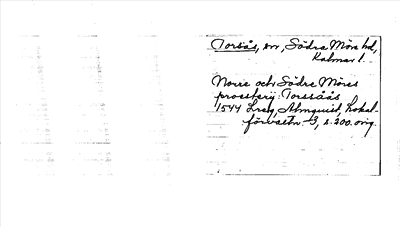 Torsås, sn, Södra Möre hd,
Kalmar l.
Norre och Södre Möres
prosteri: Torssåås
1544 Lreg, Almquist, Lokal-
förvaltn. 3, s. 200. orig.